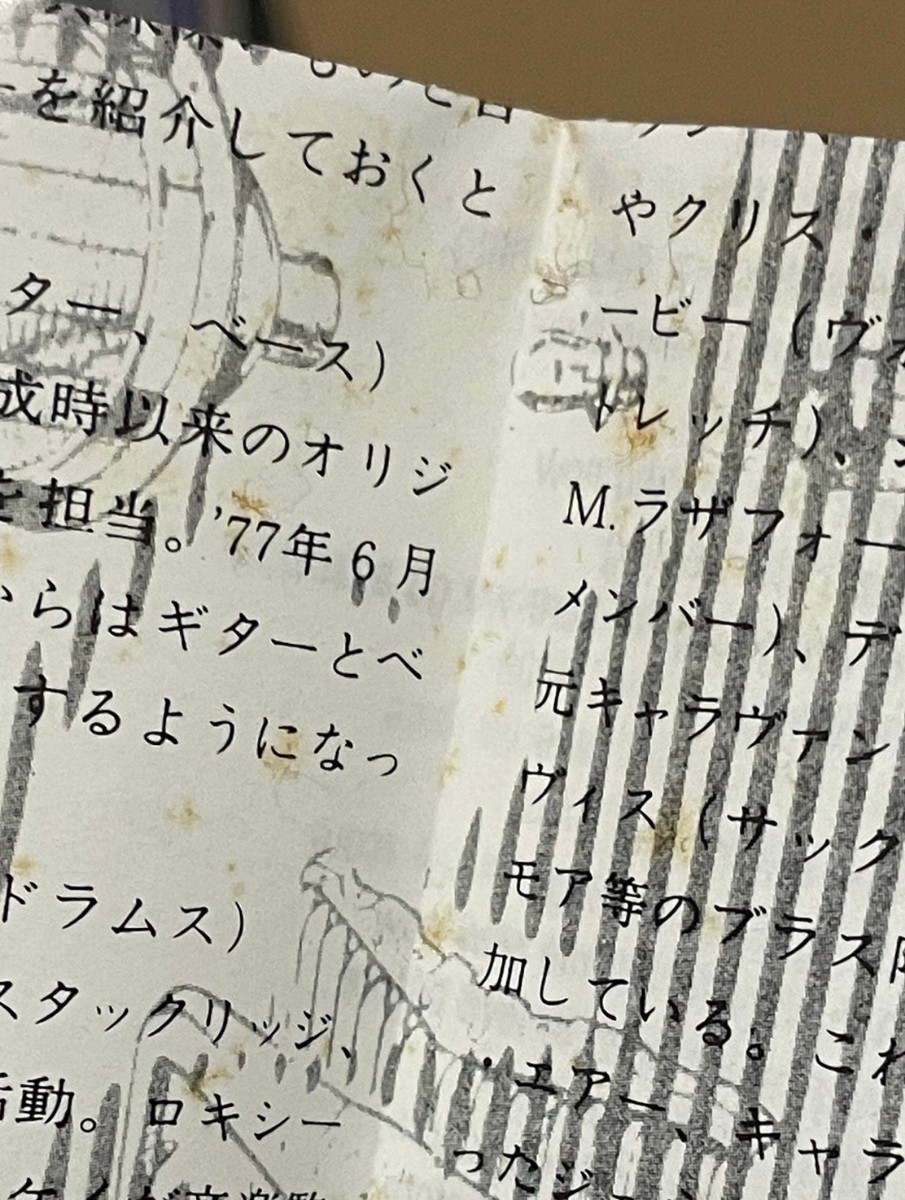 ーを紹介しておくと
ター、ベース)
成時以来のオリジ
を担当。'77年6月
からはギターとベ
するようになっ
ドラムス)
スタックリッジ、
活動。ロキシー
やクリス・
ービー(ヴォ
トレッチ)、
M.ラザフォー
メンバー)、デ
元キャラヴァン
ヴィス(サック
モア等のブラス
加している。これ
・エアー、キャラ
ったジ